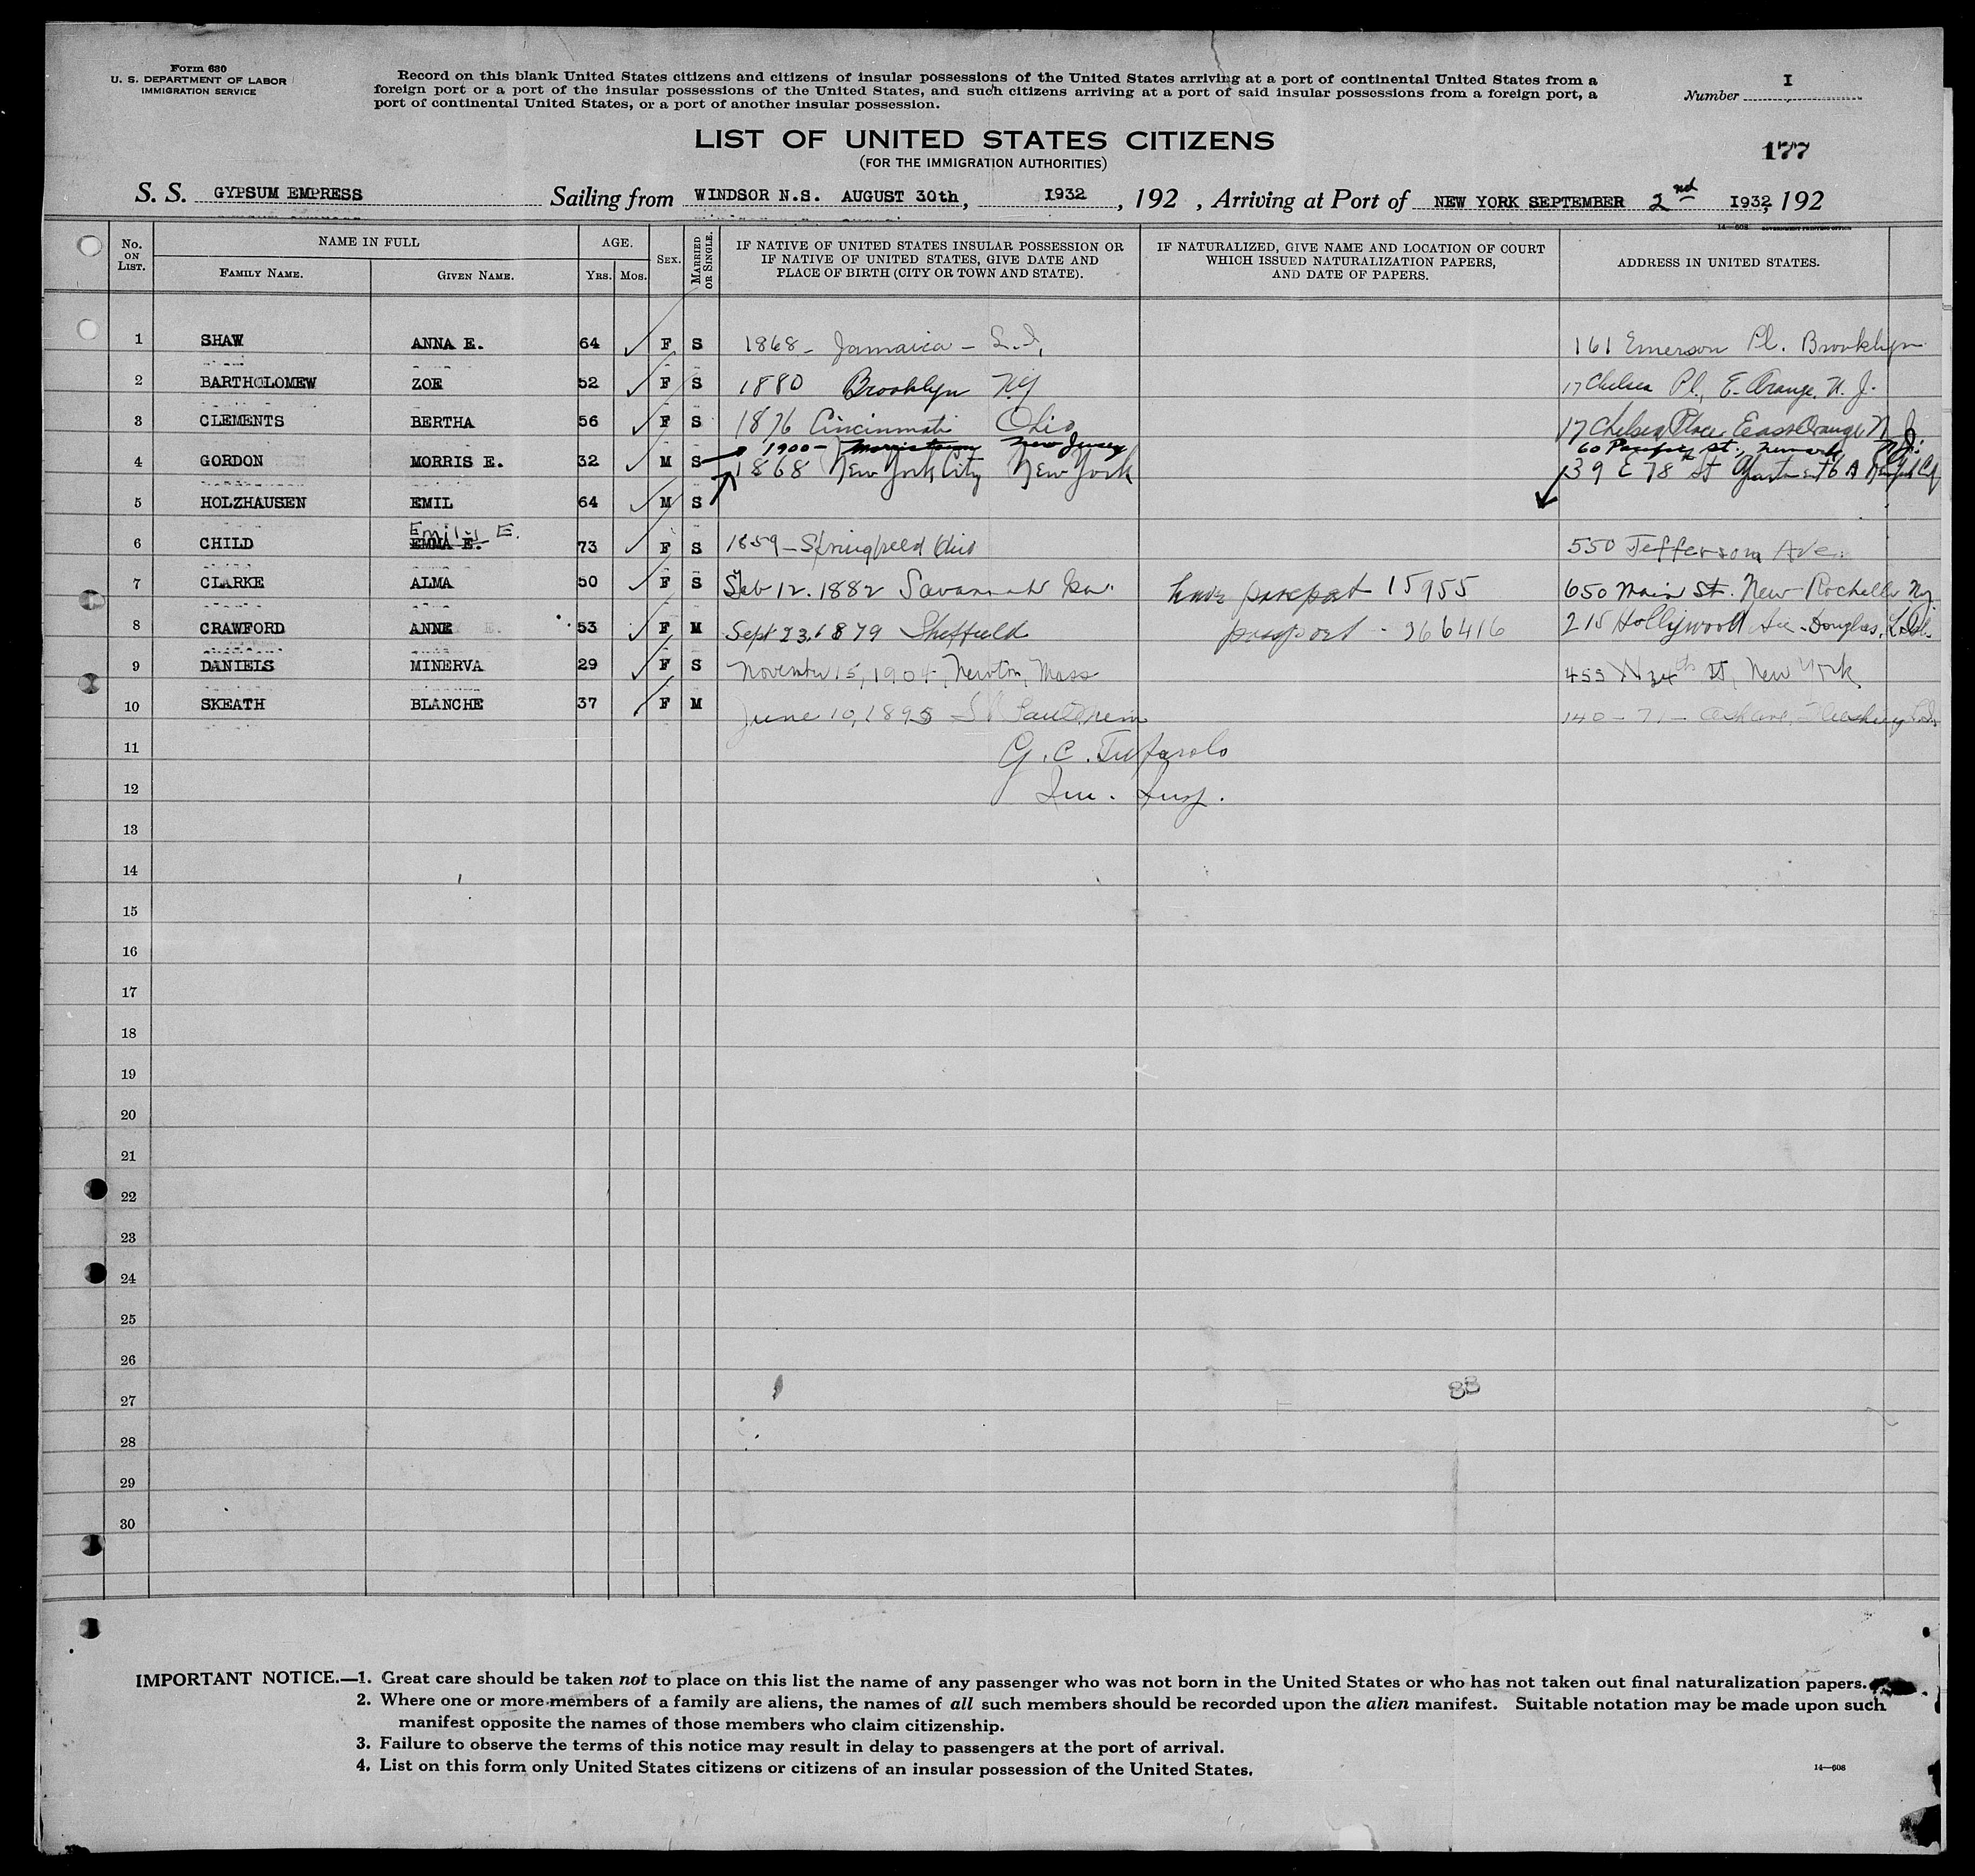 Form 630
U. S. DEPARTMENT OF LABOR
IMMIGRATION SERVICE
Record on this blank United States citizens and citizens of insular possessions of the United States arriving at a port of continental United States from a
foreign port or a port of the insular possessions of the United States, and such citizens arriving at a port of said insular possessions from a foreign port, a
port of continental United States, or a port of another insular possession.
Number I
LIST OF UNITED STATES CITIZENS
(FOR THE IMMIGRATION AUTHORITIES)
177
S. S. GYPSUM EMPRESS Sailing from WINDSOR N.S. AUGUST 30th, 1932, 192 , Arriving at Port of NEW YORK SEPTEMBER 2nd 1932, 192
14—608 GOVERNMENT PRINTING OFFICE
No. ON LIST.
NAME IN FULL
FAMILY NAME.
GIVEN NAME.
AGE.
YRS.
MOS.
SEX.
MARRIED OR SINGLE.
IF NATIVE OF UNITED STATES INSULAR POSSESSION OR
IF NATIVE OF UNITED STATES, GIVE DATE AND
PLACE OF BIRTH (CITY OR TOWN AND STATE).
IF NATURALIZED, GIVE NAME AND LOCATION OF COURT
WHICH ISSUED NATURALIZATION PAPERS,
AND DATE OF PAPERS.
ADDRESS IN UNITED STATES.
1 SHAW ANNA E. 64 F S 1868 - Jamaica - L.I. 161 Emerson Pl. Brooklyn
2 BARTHOLOMEW ZOE 52 F S 1880 Brooklyn NY 17 Chelsea Pl., E. Orange, N. J.
3 CLEMENTS BERTHA 56 F S 1876 Cincinnati Ohio 17 Chelsea Place East Orange N J.
1900 - Morristown New Jersey 60 Pacific St., Newark N.J.
4 GORDON MORRIS E. 32 M S
1868 New York City New York 39 E 78 St Apartment 6 A
5 HOLZHAUSEN EMIL 64 M S
Emily E.
6 CHILD EMMA E. 73 F S 1859 - Springfield Ohio 550 Jefferson Ave.
7 CLARKE ALMA 50 F S Feb 12. 1882 Savannah Ga. have passport 15955 650 Main St. New Rochelle Ny
8 CRAWFORD ANNE E. 53 F M Sept 23, 1879 Sheffield passport - 366416 215 Hollywood Ave. Douglas,
9 DANIELS MINERVA 29 F S November 15, 1904, Newton, Mass 455 W 34th St, New York
10 SKEATH BLANCHE 37 F M June 10, 1895 St Paul, 140 - 71 - Ash ave, Flushing
11
G. C. Tufarolo
12
Im. Insp.
13
14
15
16
17
18
19
20
21
22
23
24
25
26
27
88
28
29
30
IMPORTANT NOTICE.—1. Great care should be taken not to place on this list the name of any passenger who was not born in the United States or who has not taken out final naturalization papers.
2. Where one or more members of a family are aliens, the names of all such members should be recorded upon the alien manifest. Suitable notation may be made upon such
manifest opposite the names of those members who claim citizenship.
3. Failure to observe the terms of this notice may result in delay to passengers at the port of arrival.
4. List on this form only United States citizens or citizens of an insular possession of the United States.
14—608